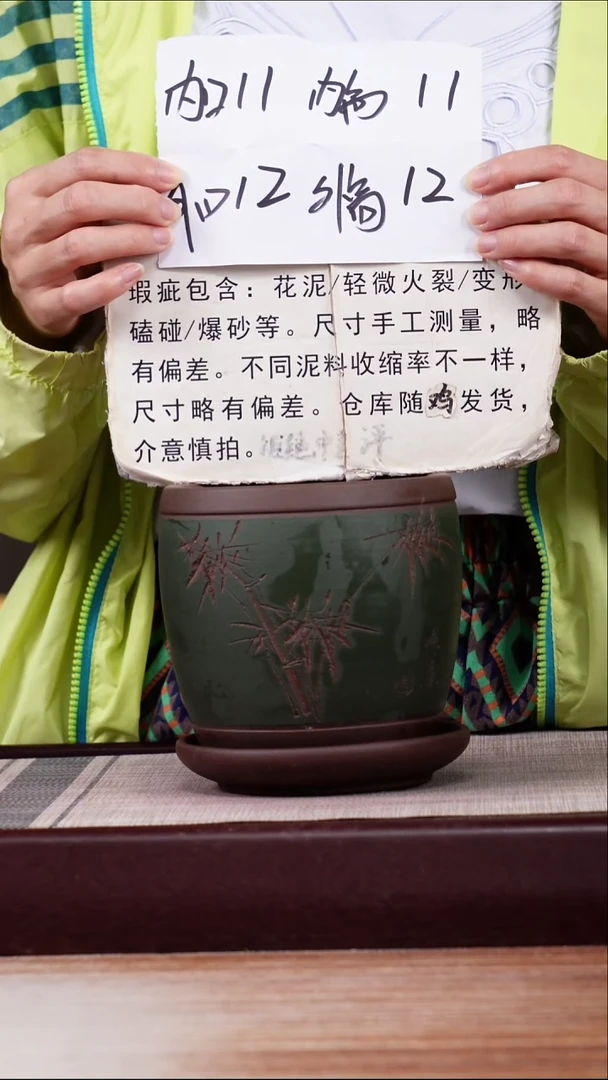 内口11 内高11
外口12 外高12
瑕疵包含：花泥/轻微火裂/变形
磕碰/爆砂等。尺寸手工测量，略
有偏差。不同泥料收缩率不一样，
尺寸略有偏差。仓库随鸡发货，
介意慎拍。